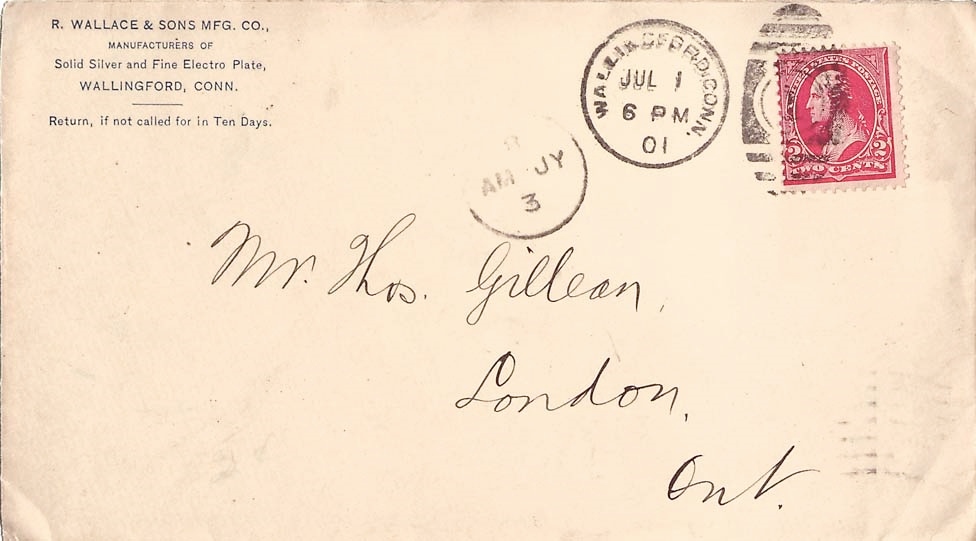 R. WALLACE & SONS MFG. CO.,
MANUFACTURERS OF
Solid Silver and Fine Electro Plate,
WALLINGFORD, CONN.
Return, if not called for in Ten Days.
WALLINGFORD, CONN.
JUL 1
6 PM
01
AM JY
3
UNITED STATES POSTAGE
2 2
TWO CENTS
Mr. Thos. Gillean,
London,
Ont.